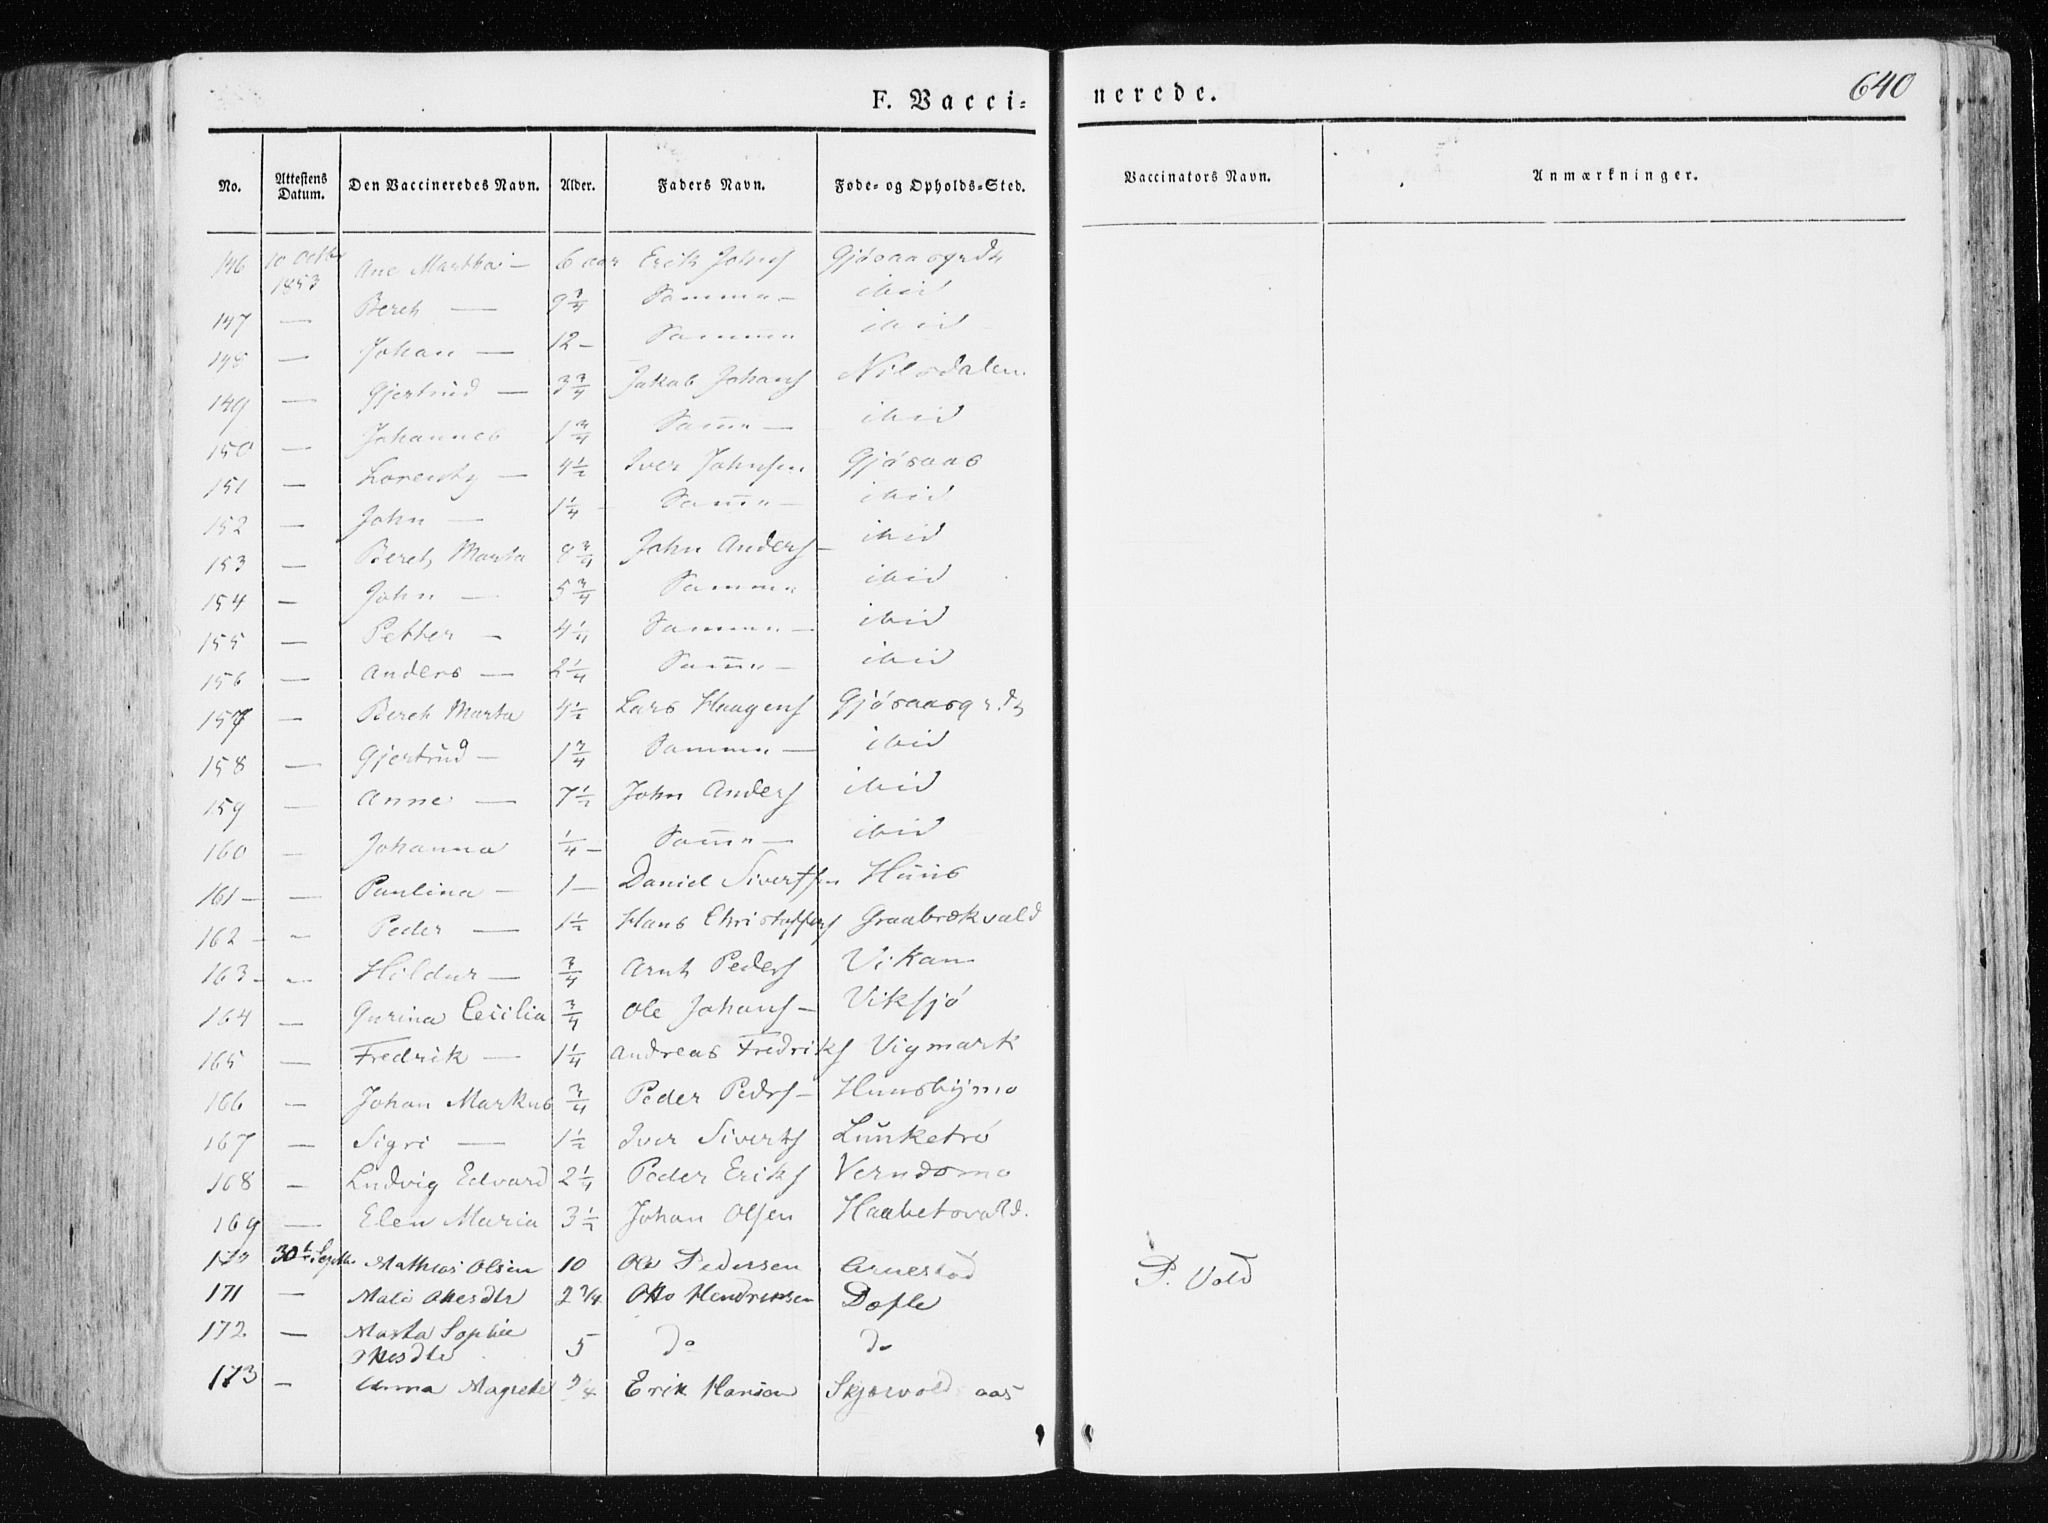 640
F. Vacci= nerede.
No. Attestens Datum. Den Vaccineredes Navn. Alder. Faders Navn. Føde- og Opholds=Sted. Vaccinators Navn. Anmærkninger.
146 10 Octbr 1853 Ane Martha — 6 aar Erik Johns Gjøsaas
147 — Beret — 9 3/4 Samme — ibid
148 — Johan — 12 — Samme ibid
149 — Gjertrud — 3 3/4 Jakob Johans Nilsdalen
150 — Johannes 1 3/4 Samme — ibid
151 — — 4 1/2 Iver Johnsen Gjøsaas
152 — John — 1 1/4 — Samme — ibid
153 — Beret Marta 8 3/4 John Anders — ibid
154 — John — 5 3/4 Samme ibid
155 — Petter — 4 1/4 Samme — ibid
156 — Anders — 2 1/4 Samme — ibid
157 — Beret Marta 4 1/2 Lars Haagens
158 — Gjertrud — 1 3/4 Samme — ibid
159 — Anne — 7 1/2 John Anders ibid
160 — Johanna 1/4 — Samme — ibid
161 — — Paulina — 1 — Daniel Sivertsen Huus
162 — — Peder — 1 1/2 Hans Christoffers Graabrekvald
163 — — Hildur — 3/4 Arnt Peders Vikan
164 — Gurina Cecilia 3/4 Ole Johans — Viksjø
165 — Fredrik — 1 1/4 Andreas Fredriks Vigmark
166 — Johan Markus 3/4 Peder Peders — Hunsbymo
167 — Sigri — 1 1/2 Iver Siverts Lunketrø
168 — Ludvig Edvard 2 1/4 Peder Eriks Verndsmo
169 — Elen Maria 3 1/2 Johan Olsen Haabetsvald.
170 30te Septbr Mathias Olsen 10 Ole Pedersen Arnestød P. Vold
171 — Mali Ottesdtr 2 3/4 Otto Hendriksen Dofle
172 — Marta Sophie
Ottesdtr 5 do do
173 — Anna Magrete 3/4 Erik Hansen Skjervolds aas